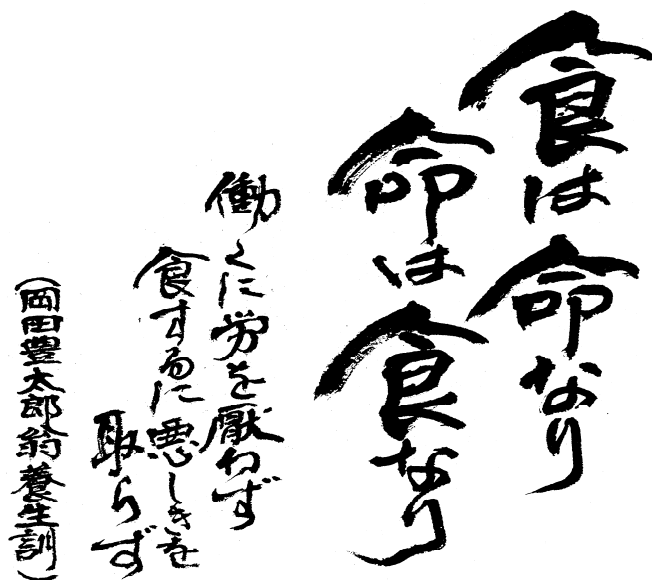 食は命なり
命は食なり
働くに労を厭わず
食するに悪しきを
取らず
(岡田豊太郎翁養生訓)